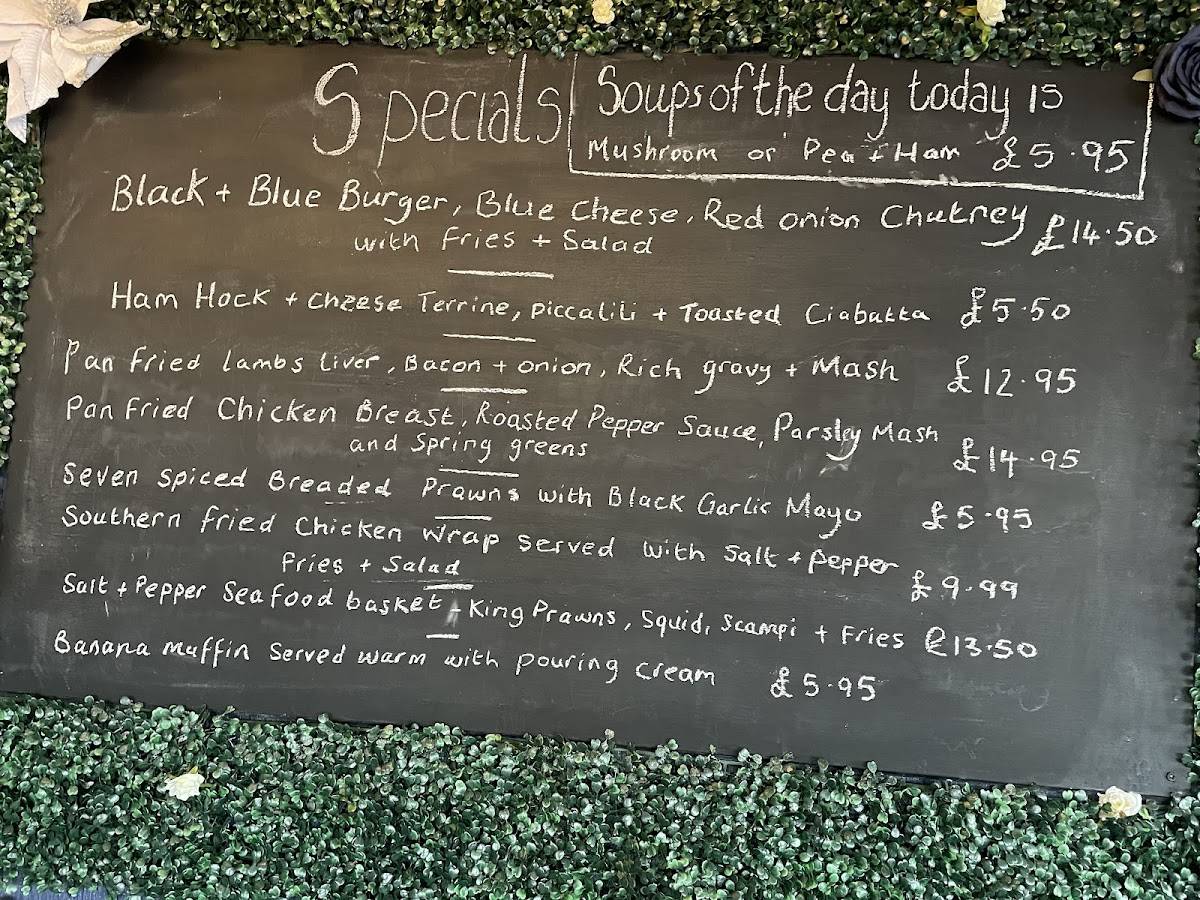 Specials
Soups of the day today is
Mushroom or Pea + Ham £5.95
Black + Blue Burger, Blue Cheese, Red onion Chutney £14.50
with Fries + Salad
Ham Hock + Cheese Terrine, piccalili + Toasted Ciabatta £5.50
Pan fried lambs liver, Bacon + onion, Rich gravy + Mash £12.95
Pan Fried Chicken Breast, Roasted Pepper Sauce, Parsley Mash
and Spring greens £14.95
Seven Spiced Breaded Prawns with Black Garlic Mayo £5.95
Southern fried Chicken Wrap served with Salt + pepper
fries + Salad £9.99
Salt + Pepper Seafood basket - King Prawns, Squid, Scampi + Fries £13.50
Banana muffin Served warm with pouring cream £5.95